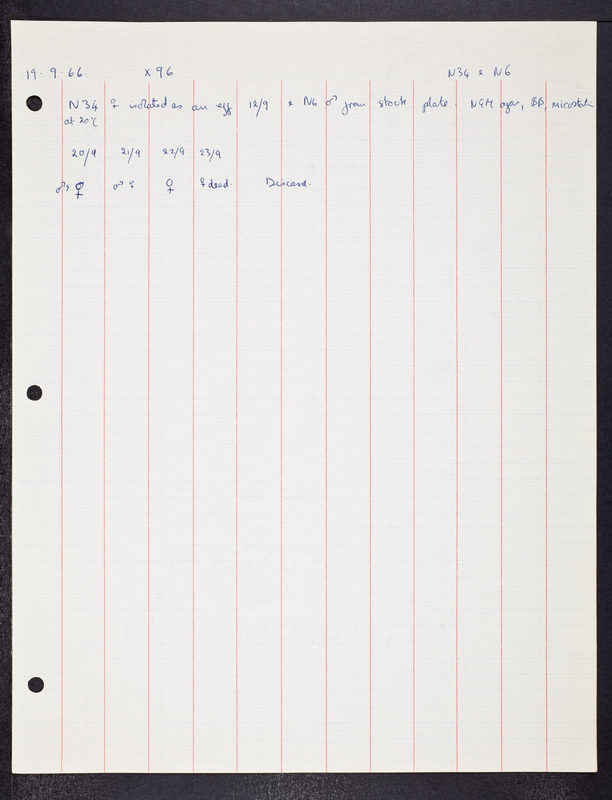 19. 9. 66. x 96 N34 x N6
N34 ♀ isolated as an egg 12/9 x N6 ♂ from stock plate. NGM agar, BB, microstatic
at 20°C
20/9 21/9 22/9 23/9
♂♀ ⚥ ♂ ♀ ♀ ♀ dead. Discard.